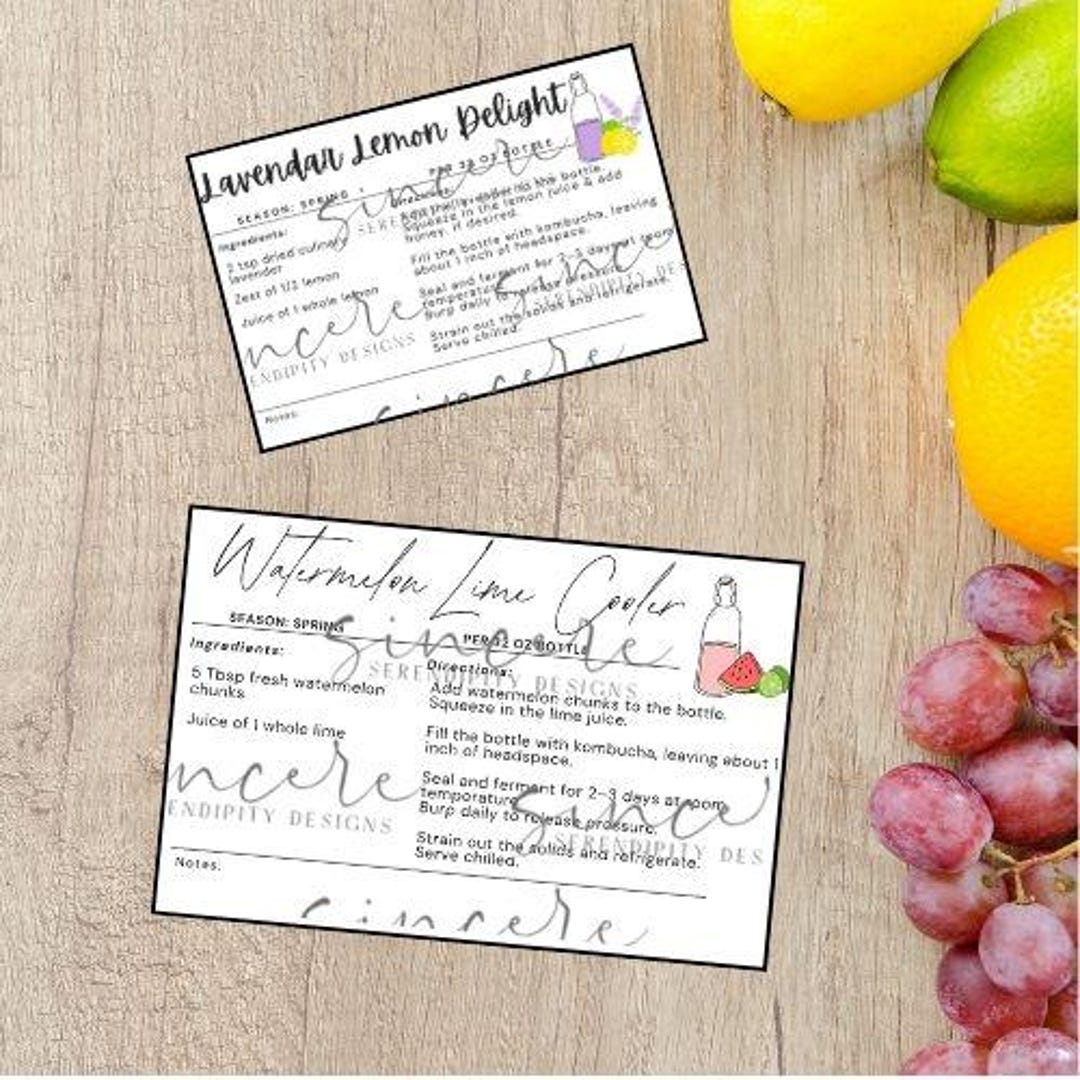 Lavendar Lemon Delight
SEASON: SPRING
PER 32 OZ BOTTLE
Ingredients:
2 tsp dried culinary
lavender
Zest of 1/2 lemon
Juice of 1 whole lemon
Squeeze in the lemon juice & add
honey, if desired.
Fill the bottle with kombucha, leaving
about 1 inch of headspace.
Seal and ferment for 2-3 days at room
temperature.
Burp daily to release pressure.
Strain out the solids and refrigerate.
Serve chilled.
Notes:
sincere
SERENDIPITY DESIGNS
ncere
ENDIPITY DESIGNS
since
SERENDIPITY DES
sincere
Watermelon Lime Cooler
SEASON: SPRING
PER 32 OZ BOTTLE
Ingredients:
5 Tbsp fresh watermelon
chunks
Juice of 1 whole lime
Directions:
Add watermelon chunks to the bottle.
Squeeze in the lime juice.
Fill the bottle with kombucha, leaving about 1
inch of headspace.
Seal and ferment for 2-3 days at room
temperature.
Burp daily to release pressure.
Strain out the solids and refrigerate.
Serve chilled.
Notes:
sincere
SERENDIPITY DESIGNS
ncere
ENDIPITY DESIGNS
since
SERENDIPITY DES
sincere